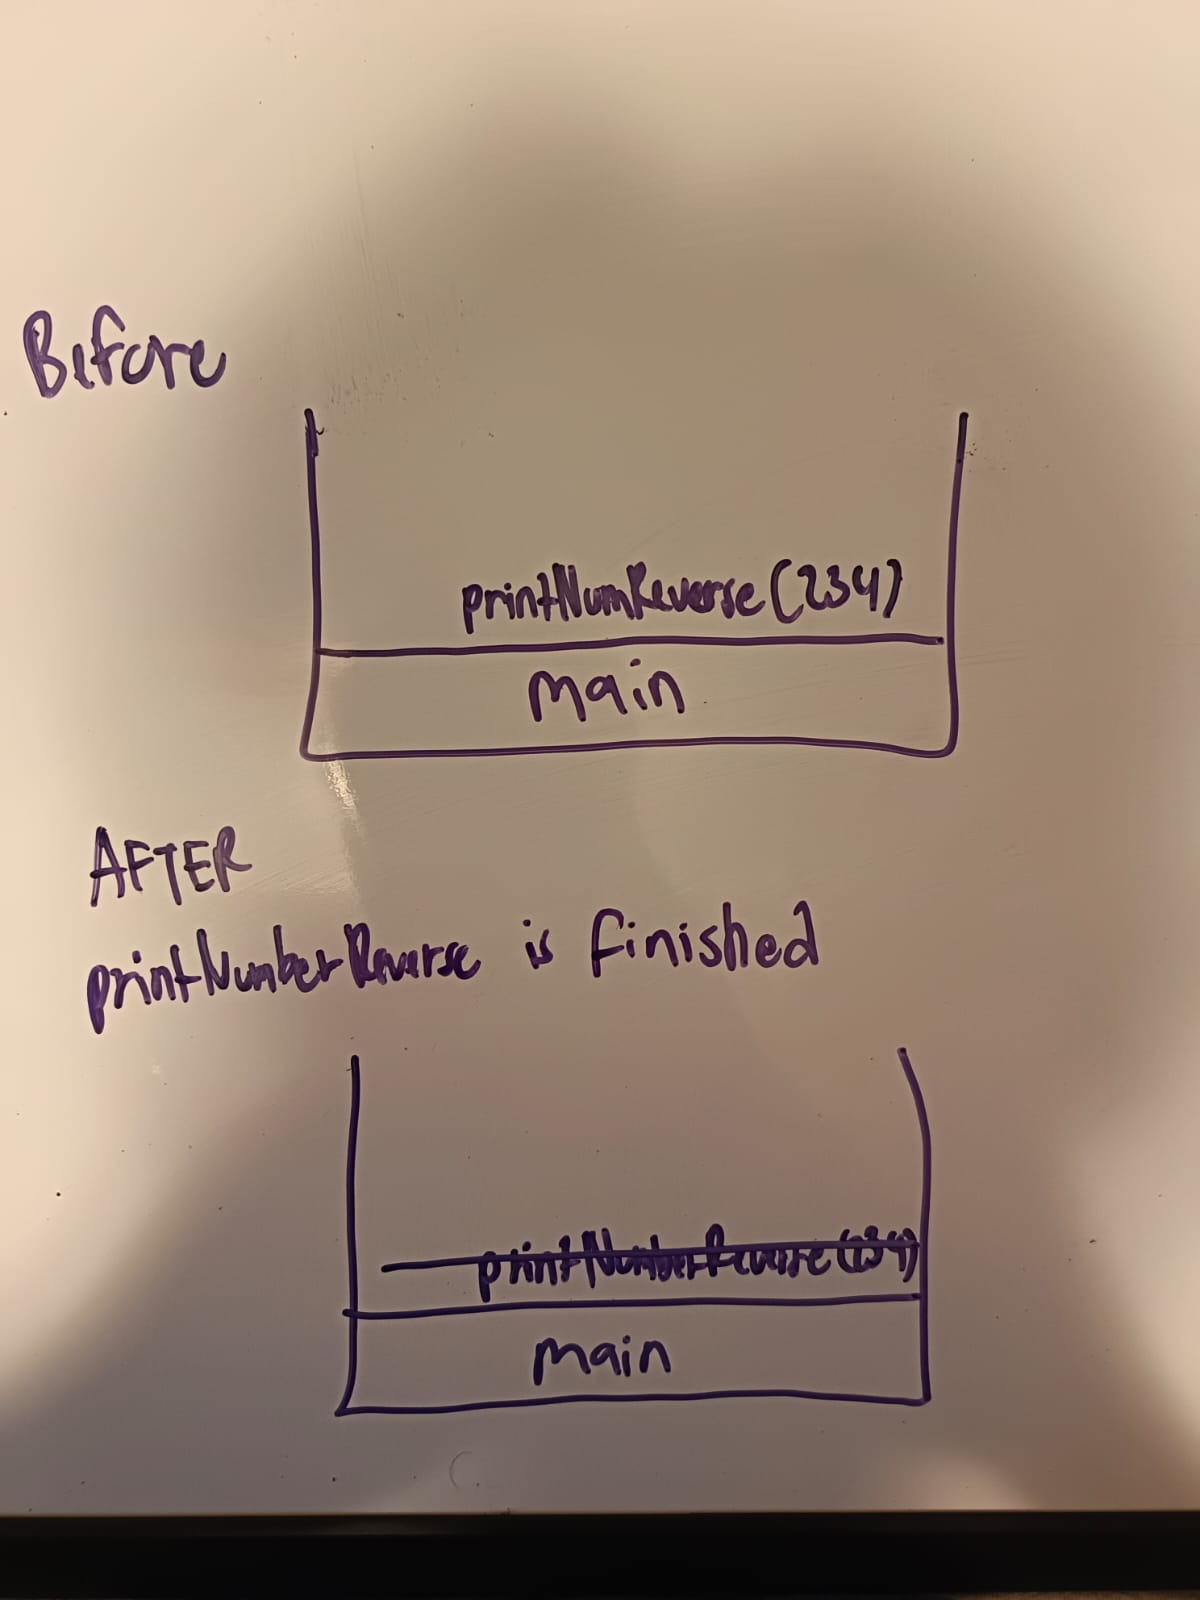 Before
printNumReverse(234)
main
AFTER
printNumberReverse is finished
printNumberReverse(234)
main